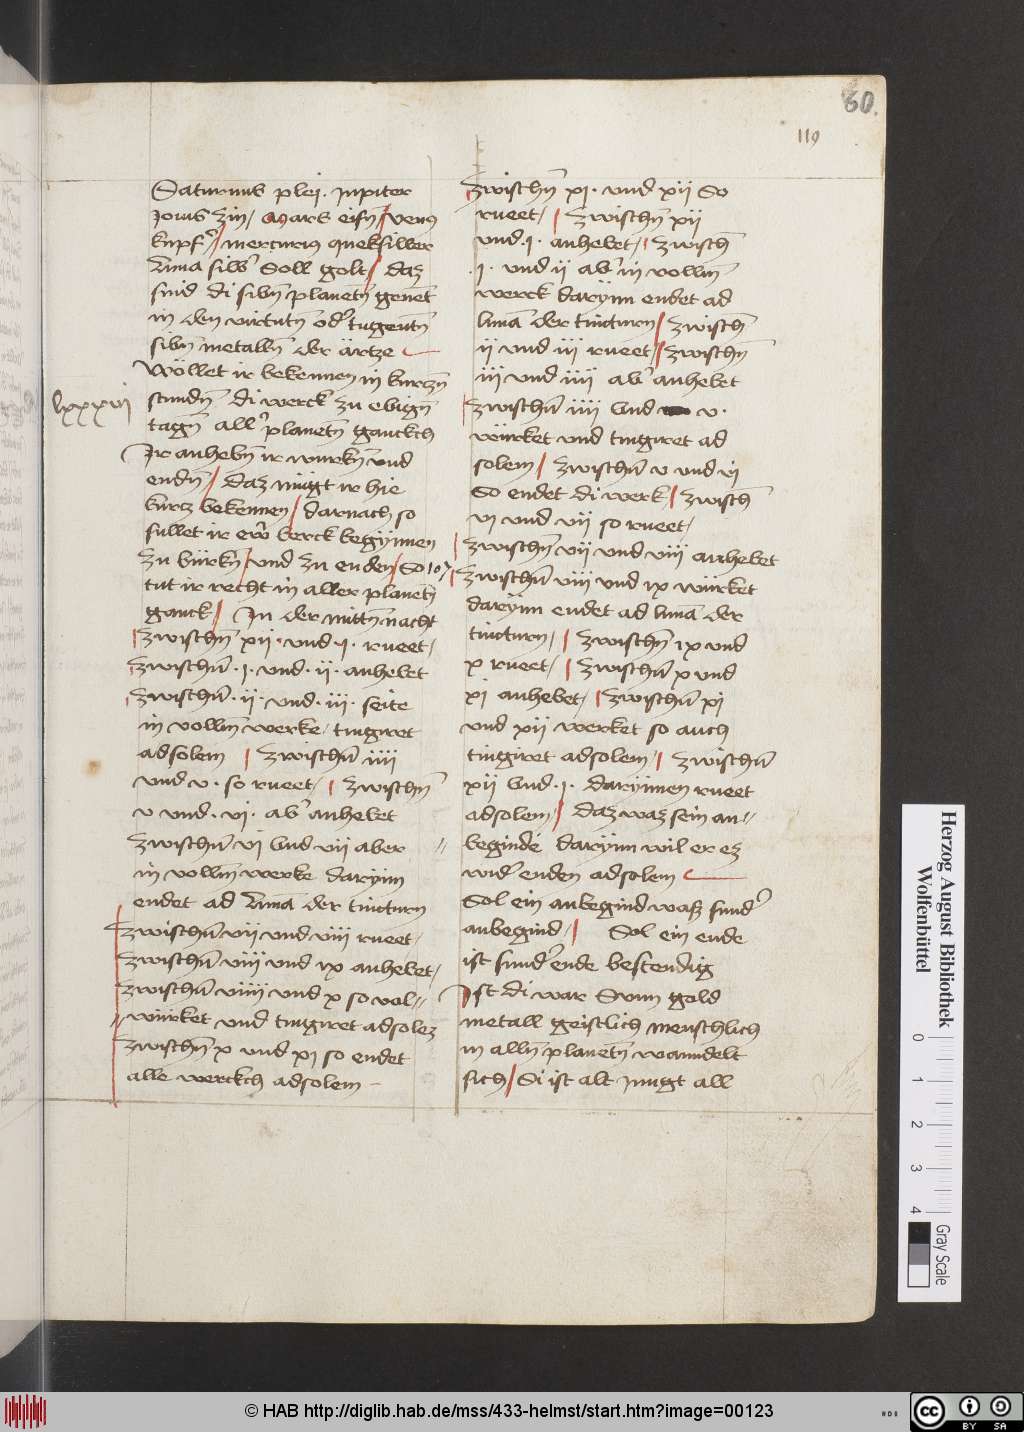 60.
119
Saturnus plei. Jupiter
Jovis zin / Mars eisn̄ / venꝰ
kupf̓ / mercuriꝰ queksilber
Luna silb̓ Soll golt / daz
sind di sibn̄ planetn̄ genēt
in den virtutn̄ od̓ tugentn̄
sibn̄ metalln̄ der ärtze
Wöllet ir bekennen in kurczn̄
lxxxvi
stundn̄ di werck zu ebign̄
tagn̄ all̓ planetn̄ ganckch
Ir anhebn̄ ir wurkn̄ vnd
endn̄ / daz mügt ir hie
kurcz bekennen / darnach so
sullet ir ew̓ berck begȳnnen
zu bürkn̄ / vnd zu enden / So
tut ir recht in aller planetn̄
ganck / In der mittn̄ nacht
zwischn̄ xii · vnd · i · rueet /
zwischn̄ · i · vnd · ii · anhebet
zwischn̄ · ii · vnd · iii · seite
in vollm̄ werke / tingiret
adsolem / zwischn̄ iiii
vnd v · so rueet / zwischn̄
v vnd · vi · ab̓ anhebet
zwischn̄ vi vnd vii aber
in vollm̄ werke darynn
endet ad Luna der tincturn
zwischn̄ vii vnd viii rueet /
zwischn̄ viiii vnd ix anhebet /
zwischn̄ viiii vnd x so vol〃
〃würket vnd tingiret adsolez
zwischn̄ x vnd xi so endet
alle werckch adsolem
zwischn̄ xi · vnd xii So
rueet / zwischn̄ xii
vnd · i · anhebet / zwisch̄
· i · vnd ii ab̓ in vollm̄
werck darynn endet ad
lunā der tincturn / zwisch̄
ii vnd iii rueet / zwischn̄
iii vnd iiii ab̓ anhebet
zwischn̄ iiii vnd v ·
würket vnd tingiret ad
solem / zwischn̄ v vnd vi
So endet di werk / zwisch̄
vi vnd vii so rueet /
zwischn̄ vii vnd viii anhebet
zwischn̄ viii vnd ix würket
darynn endet ad lunā der
tincturn / zwischn̄ ix vnd
x rueet / zwischn̄ x vnd
xi anhebet / zwischn̄ xi
vnd xii werket so auch
tingiret adsolem / zwischn̄
xii vnd · i · darynnen rueet
adsolem / daz waz sein an〃
〃beginde darynn wil er ez
wid̓ enden adsolem
Sol ein anbegind waß sund̓
anbegind / Sol ein ende
ist sund̓ ende bestendig
Ist di war Sunn gold
metall geistlich menschlich
in alln̄ planetn̄ wanndelt
sich / Si ist alt Jungt all
Herzog August Bibliothek
Wolfenbüttel
0 1 2 3 4
Gray Scale
© HAB http://diglib.hab.de/mss/433-helmst/start.htm?image=00123
HAB
cc BY SA